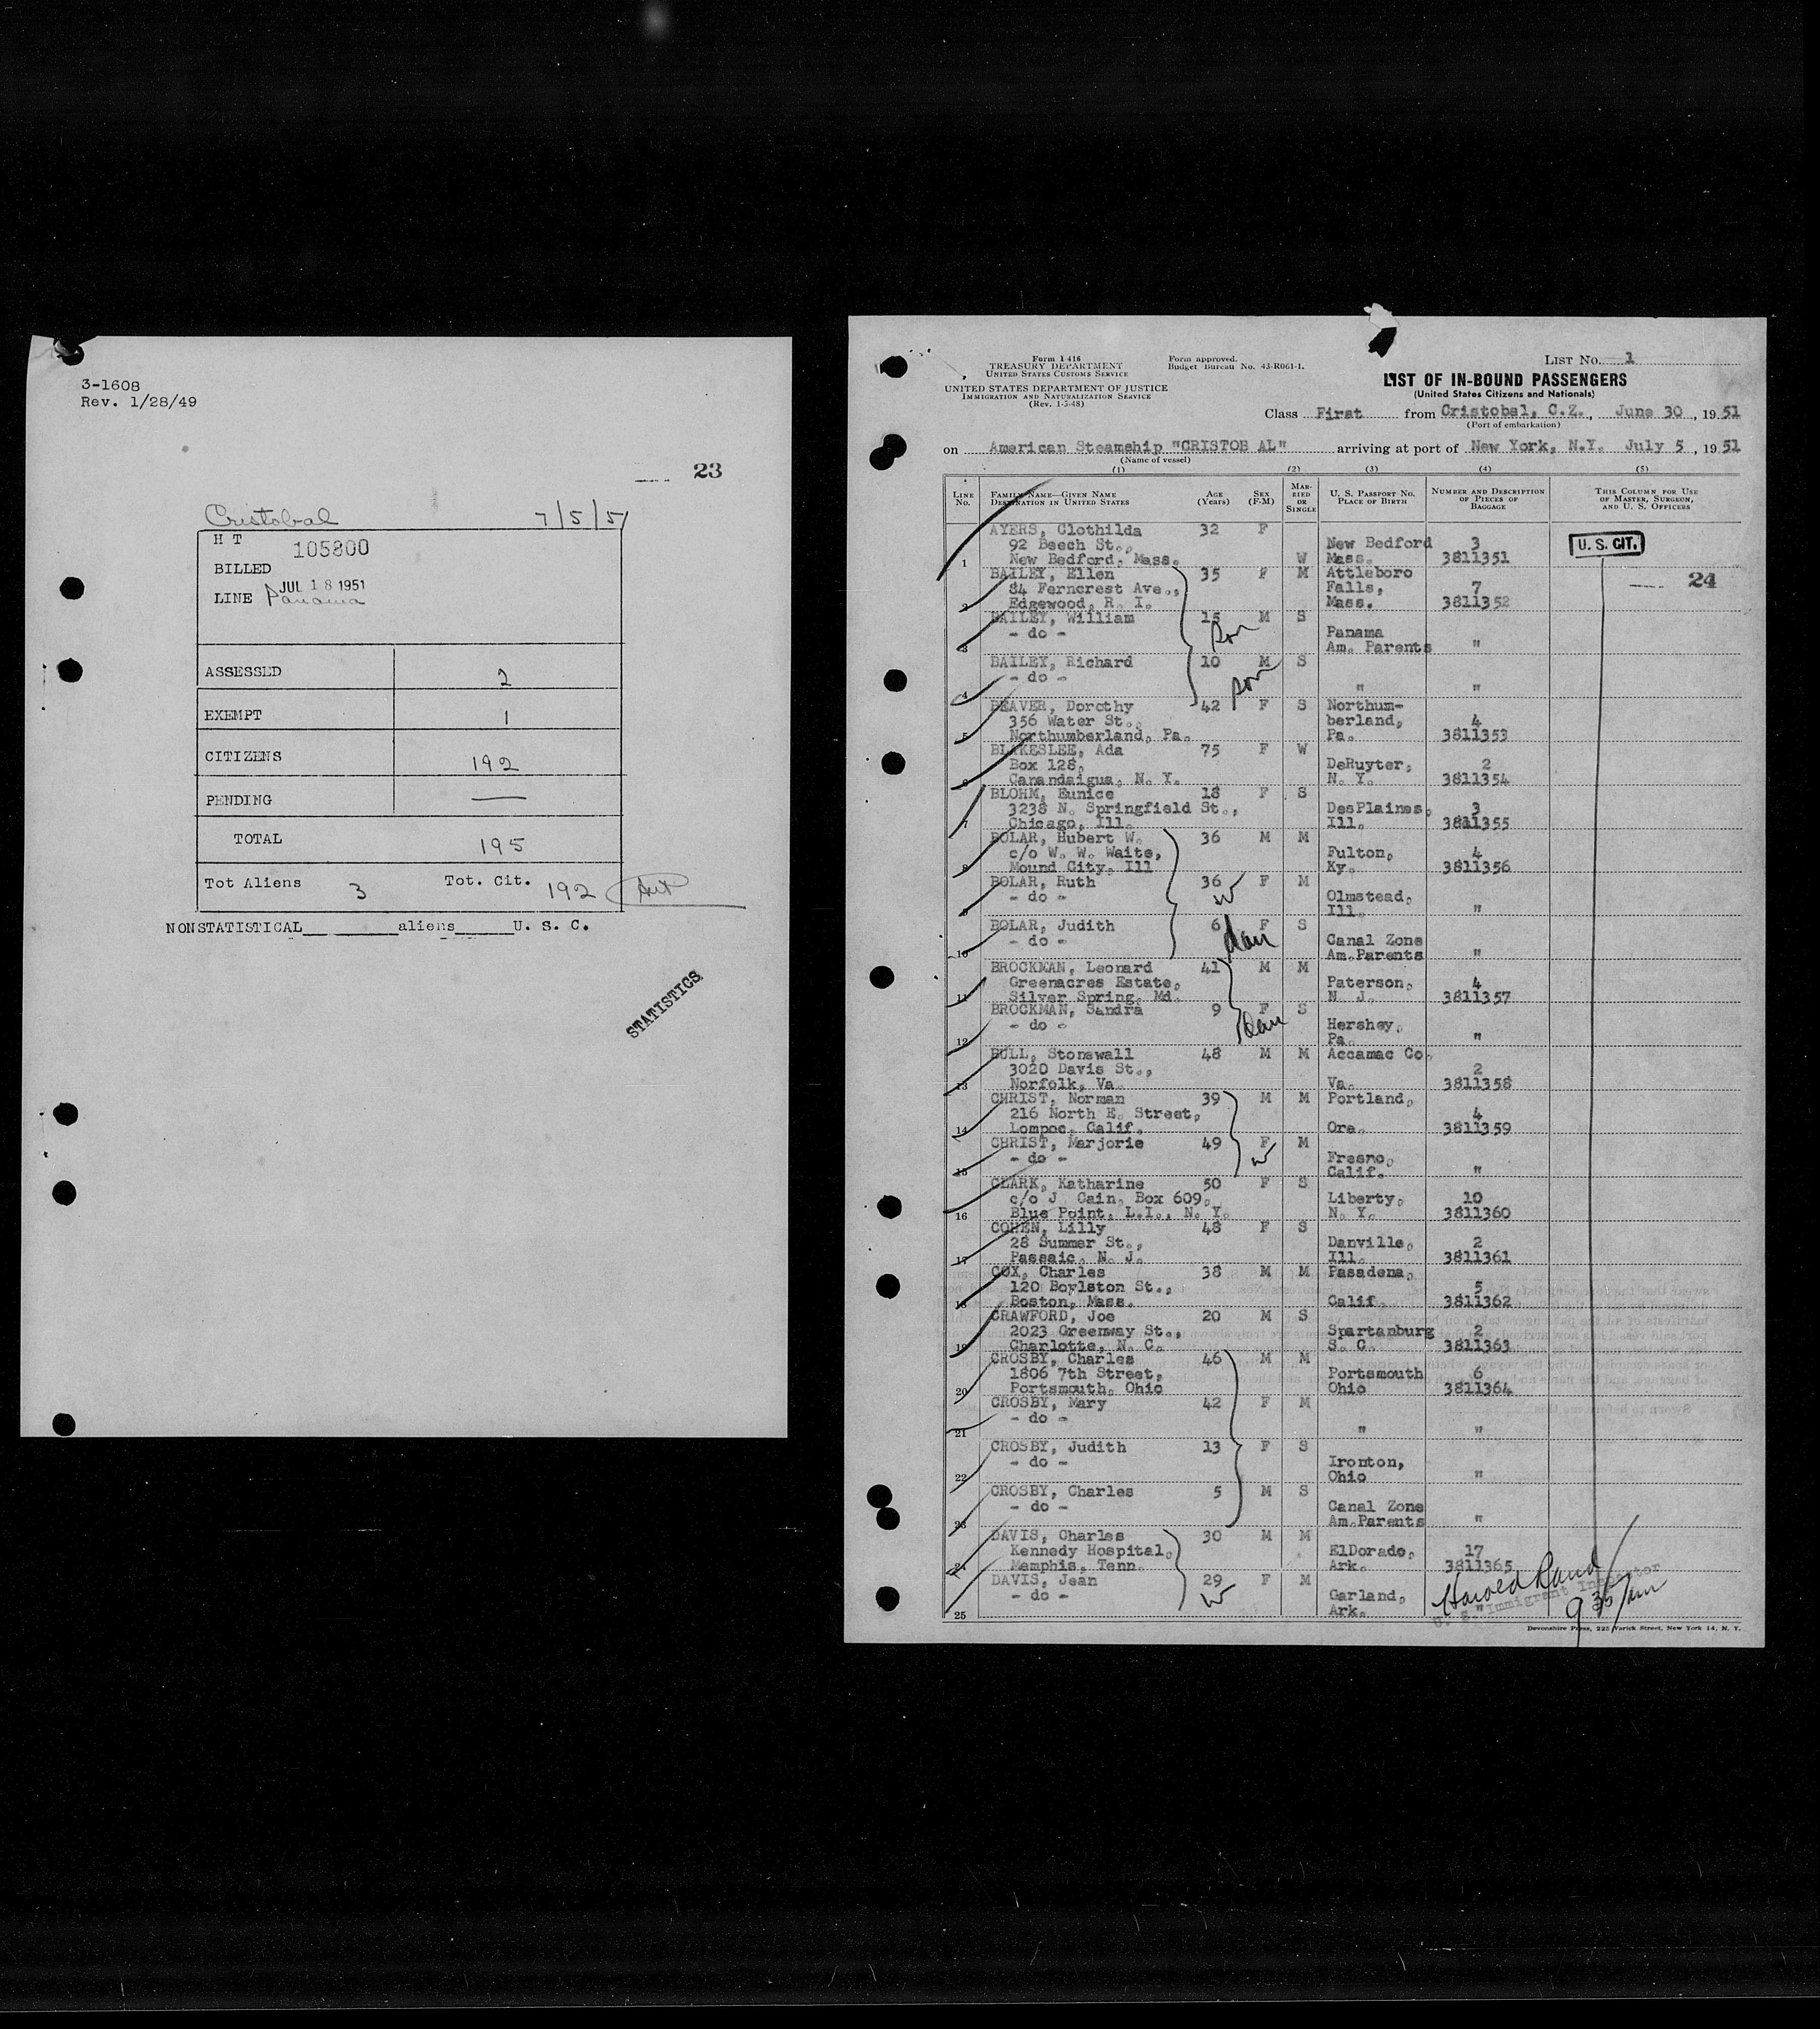 3-1608
Rev. 1/28/49
23
Cristobal 7/5/51
H T 105800
BILLED
JUL 18 1951
LINE Panama
ASSESSED 2
EXEMPT 1
CITIZENS 192
PENDING —
TOTAL 195
Tot Aliens 3 Tot. Cit. 192
NONSTATISTICAL aliens U. S. C.
STATISTICS
Form I 416
TREASURY DEPARTMENT
UNITED STATES CUSTOMS SERVICE
UNITED STATES DEPARTMENT OF JUSTICE
IMMIGRATION AND NATURALIZATION SERVICE
(Rev. 1-5-48)
Form approved.
Budget Bureau No. 43-R061-1.
LIST NO. 1
LIST OF IN-BOUND PASSENGERS
(United States Citizens and Nationals)
Class First from Cristobal, C.Z., June 30, 1951
(Port of embarkation)
on American Steamship "CRISTOBAL" arriving at port of New York, N.Y. July 5, 1951
(Name of vessel)
(1) (2) (3) (4) (5)
LINE NO.
FAMILY NAME—GIVEN NAME
DESTINATION IN UNITED STATES
AGE (YEARS)
SEX (F-M)
MARRIED OR SINGLE
U. S. PASSPORT NO.
PLACE OF BIRTH
NUMBER AND DESCRIPTION OF PIECES OF BAGGAGE
THIS COLUMN FOR USE OF MASTER, SURGEON, AND U. S. OFFICERS
U. S. CIT.
24
AYERS, Clothilda 32 F
92 Beech St., New Bedford 3
1 New Bedford, Mass. W Mass. 3811351
BAILEY, Ellen 35 F M Attleboro
84 Ferncrest Ave., Falls, 7
2 Edgewood, R. I. Mass. 3811352
BAILEY, William 15 M S
- do - son Panama
3 Am. Parents "
BAILEY, Richard 10 M S
- do - son
4 " "
BEAVER, Dorothy 42 F S Northum-
356 Water St., berland, 4
5 Northumberland, Pa. Pa. 3811353
BLAKESLEE, Ada 75 F W
Box 128, DeRuyter, 2
6 Canandaigua, N. Y. N. Y. 3811354
BLOHM, Eunice 18 F S
3238 N. Springfield St., DesPlaines, 3
7 Chicago, Ill. Ill. 3811355
BOLAR, Hubert W. 36 M M
c/o W. W. Waite, Fulton, 4
8 Mound City, Ill Ky. 3811356
BOLAR, Ruth 36 F M
- do - w Olmstead,
9 Ill. "
BOLAR, Judith 6 F S
- do - dau Canal Zone
10 Am.Parents "
BROCKMAN, Leonard 41 M M
Greenacres Estate, Paterson, 4
11 Silver Spring, Md. N. J. 3811357
BROCKMAN, Sandra 9 F S
- do - dau Hershey,
12 Pa. "
BULL, Stonewall 48 M M Accamac Co.
3020 Davis St., 2
13 Norfolk, Va. Va. 3811358
CHRIST, Norman 39 M M Portland,
216 North E. Street, 4
14 Lompoc, Calif. Ore. 3811359
CHRIST, Marjorie 49 F M
- do - w Fresno,
15 Calif. "
CLARK, Katharine 50 F S
c/o J. Cain, Box 609, Liberty, 10
16 Blue Point, L.I., N. Y. N. Y. 3811360
COHEN, Lilly 48 F S
28 Summer St., Danville, 2
17 Passaic, N. J. Ill. 3811361
COX, Charles 38 M M Pasadena,
120 Boylston St., 5
18 Boston, Mass. Calif. 3811362
CRAWFORD, Joe 20 M S
2023 Greenway St., Spartanburg 2
19 Charlotte, N. C. S. C. 3811363
CROSBY, Charles 46 M M
1806 7th Street, Portsmouth 6
20 Portsmouth, Ohio Ohio 3811364
CROSBY, Mary 42 F M
- do -
21 " "
CROSBY, Judith 13 F S
- do - Ironton,
22 Ohio "
CROSBY, Charles 5 M S
- do - Canal Zone
23 Am.Parents "
DAVIS, Charles 30 M M
Kennedy Hospital, ElDorado, 17
24 Memphis, Tenn. Ark. 3811365
DAVIS, Jean 29 F M
- do - w Garland,
25 Ark. "
Harold Rand
U. S. Immigrant Inspector
9 30 am
Devonshire Press, 225 Varick Street, New York 14, N. Y.